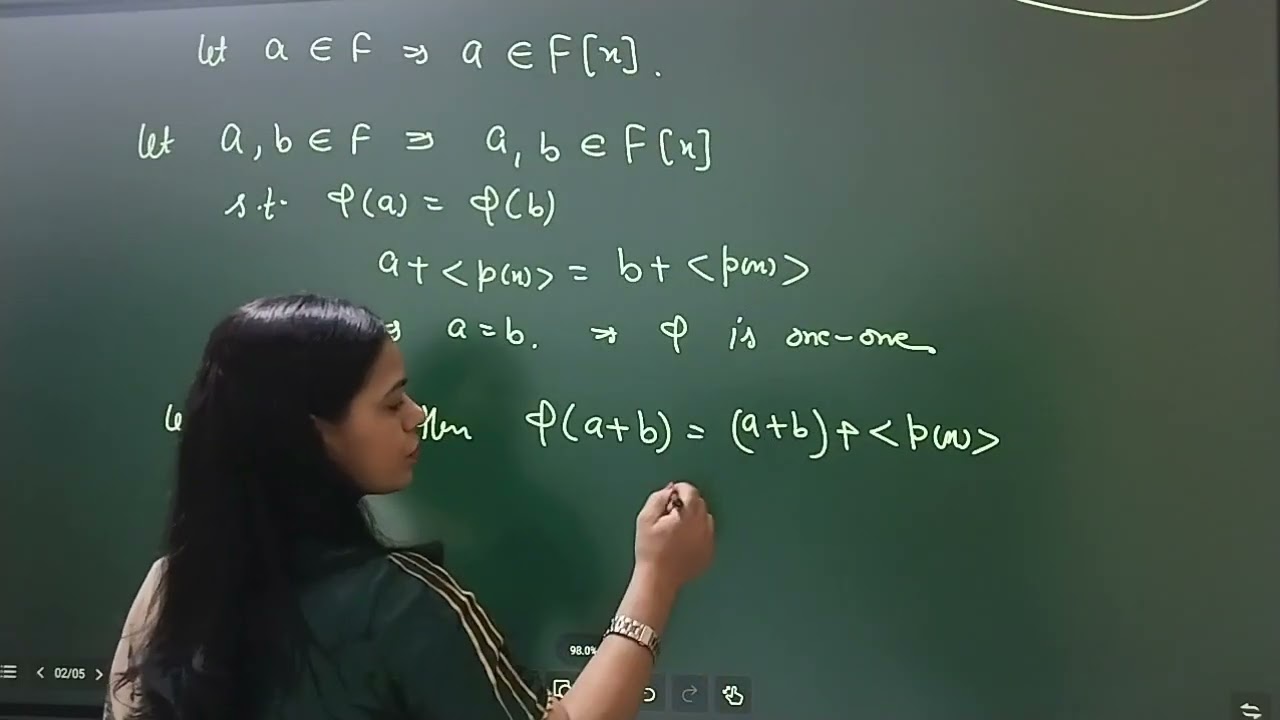 let a ∈ F ⇒ a ∈ F[x].
let a, b ∈ F ⇒ a, b ∈ F[x]
s.t. φ(a) = φ(b)
a + <p(x)> = b + <p(x)>
⇒ a = b. ⇒ φ is one-one
then φ(a+b) = (a+b) + <p(x)>
98.0%
02/05